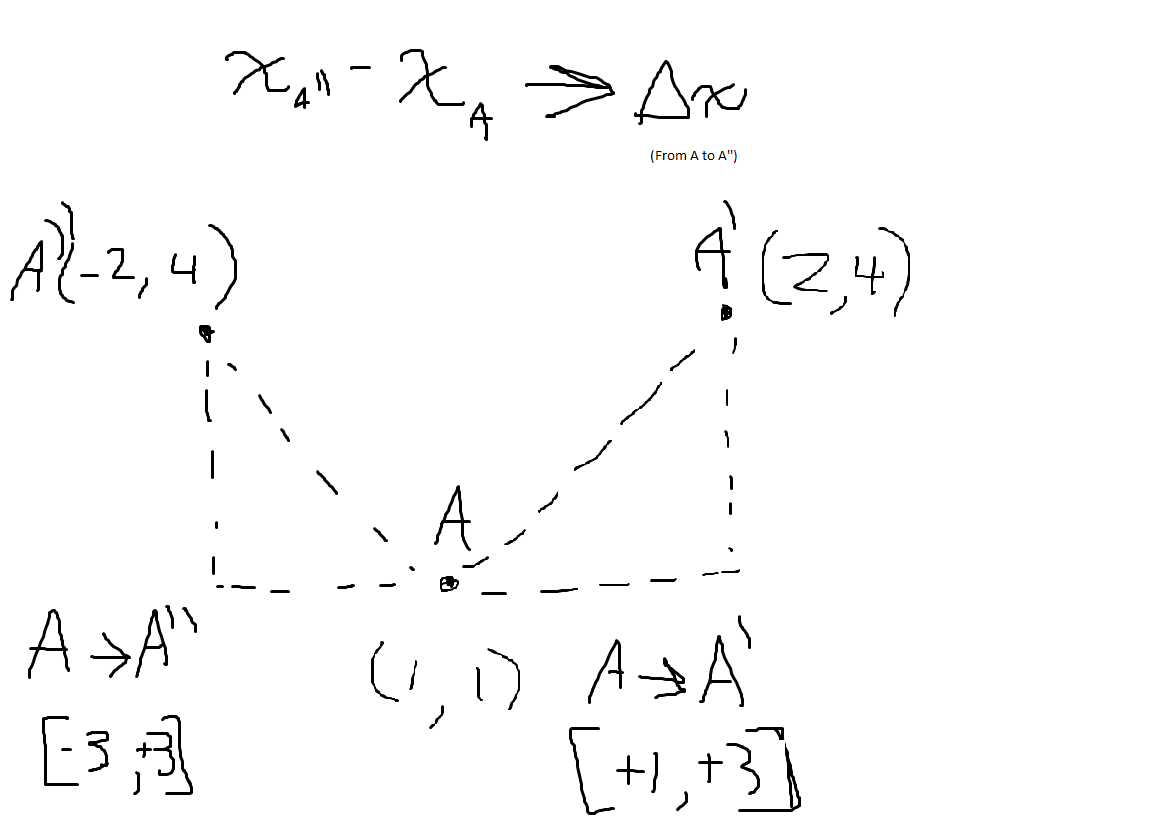 x_A'' - x_A ⇒ Δx
(From A to A")
A''(-2, 4)
A'(2,4)
A
(1, 1)
A → A''
[-3, +3]
A → A'
[+1, +3]